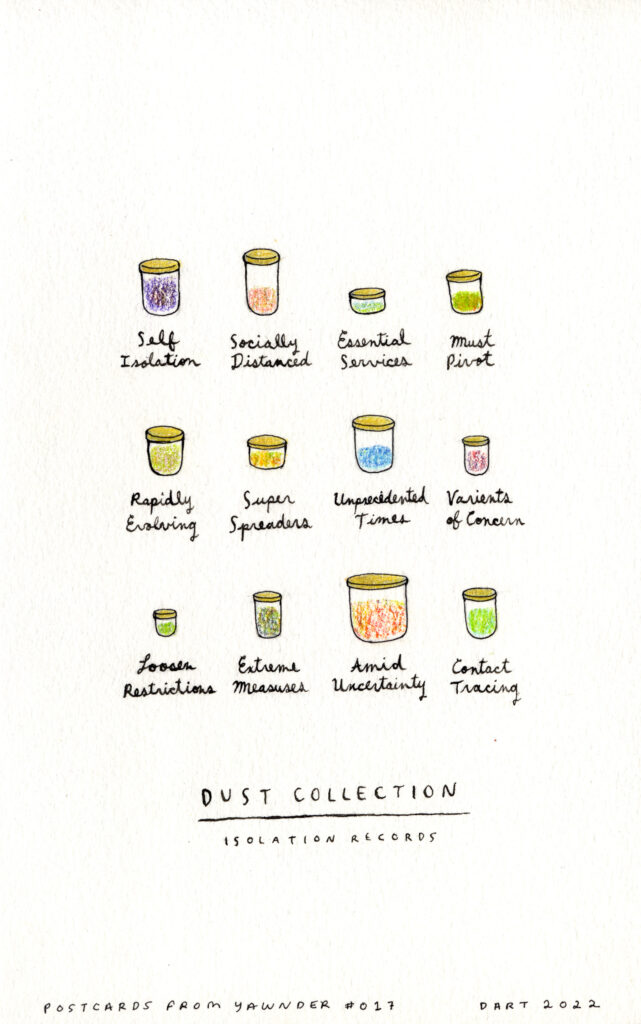 Self
Isolation
Socially
Distanced
Essential
Services
Must
Pivot
Rapidly
Evolving
Super
Spreaders
Unprecidented
Times
Varients
of Concern
Loosen
Restrictions
Extreme
Measuses
Amid
Uncertainty
Contact
Tracing
DUST COLLECTION
ISOLATION RECORDS
POSTCARDS FROM YAWNDER #017
DART 2022